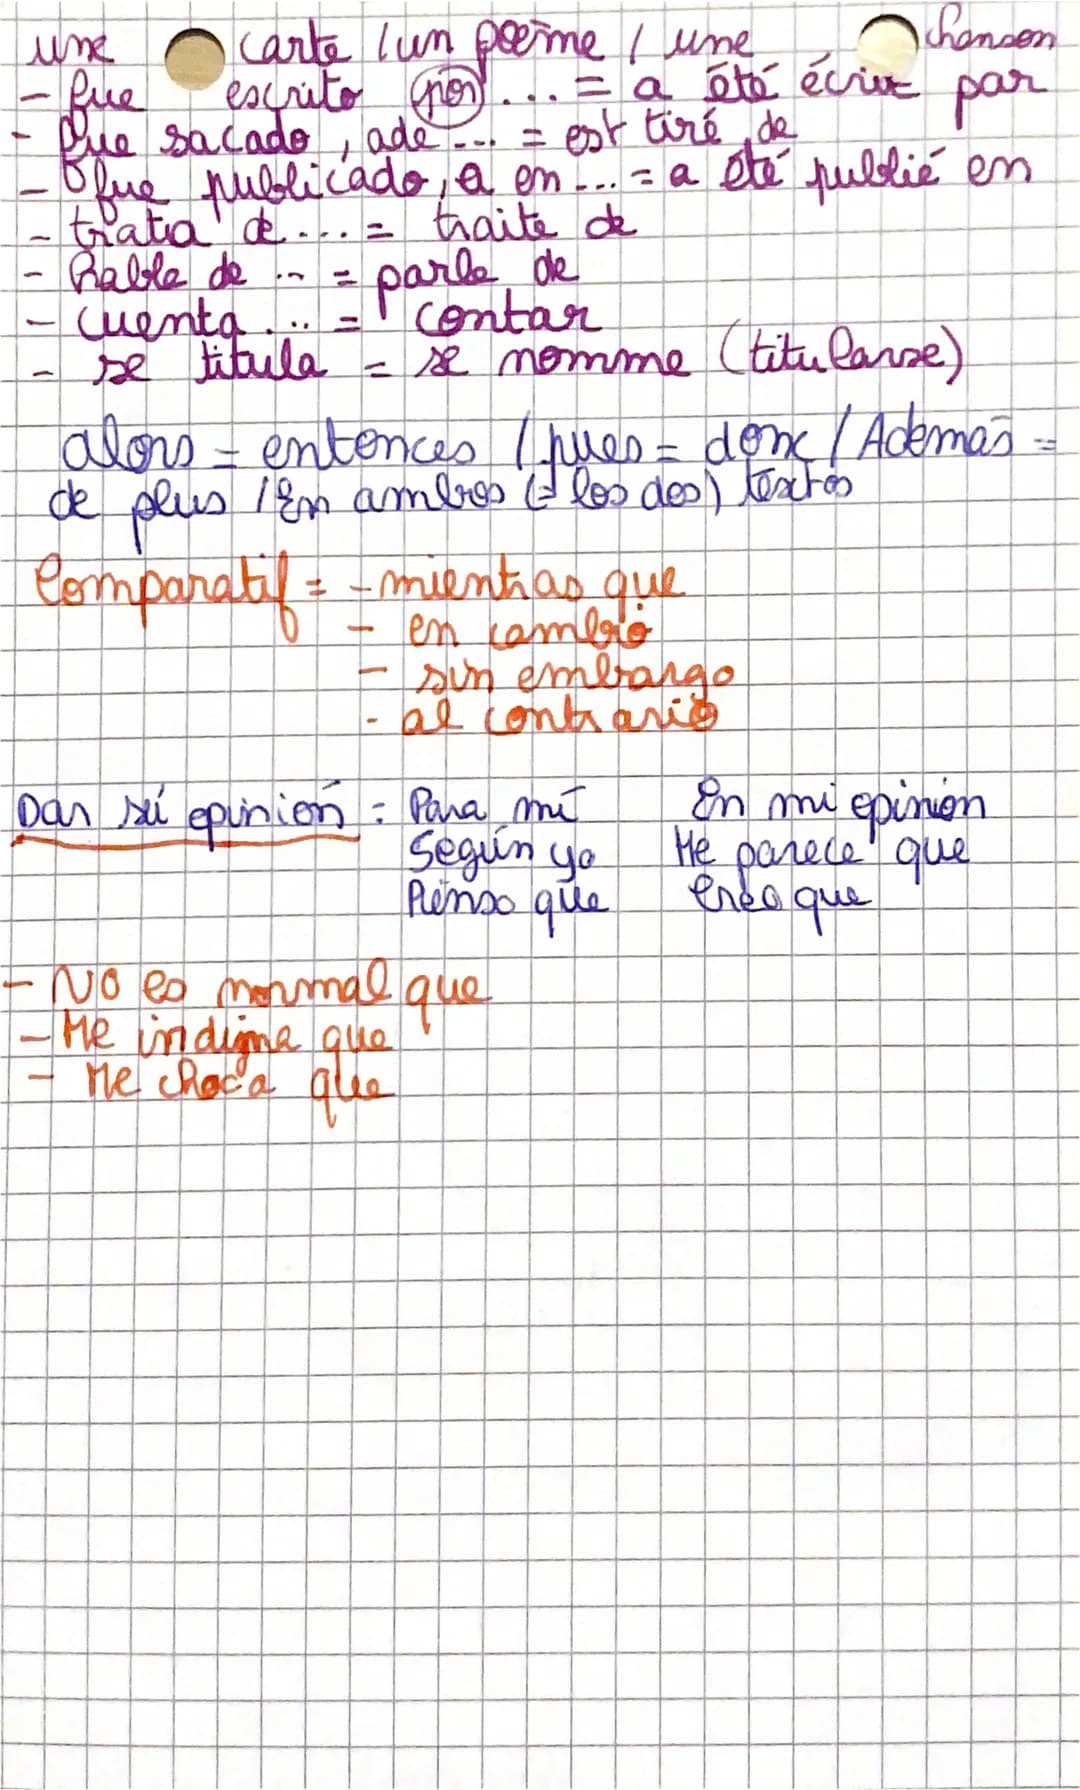 une carte / un poème / une chanson
- fue escrito por ... = a été écrit par
- fue sacado, a de ... = est tiré de
- fue publicado, a en ... = a été publié en
- trata de ... = traite de
- Habla de ... = parle de
- cuenta ... = contar
- se titula = se nomme (titularse)
alors = entonces / pues = donc / Ademas =
de plus / En ambos (= los dos) textos
Comparatif = - mientras que
- en cambio
- sin embargo
- al contrario
Dar sú opinion = Para mí En mi opinión
Según yo Me parece que
Pienso que Creo que
- No es normal que
- Me indigna que
- Me choca que